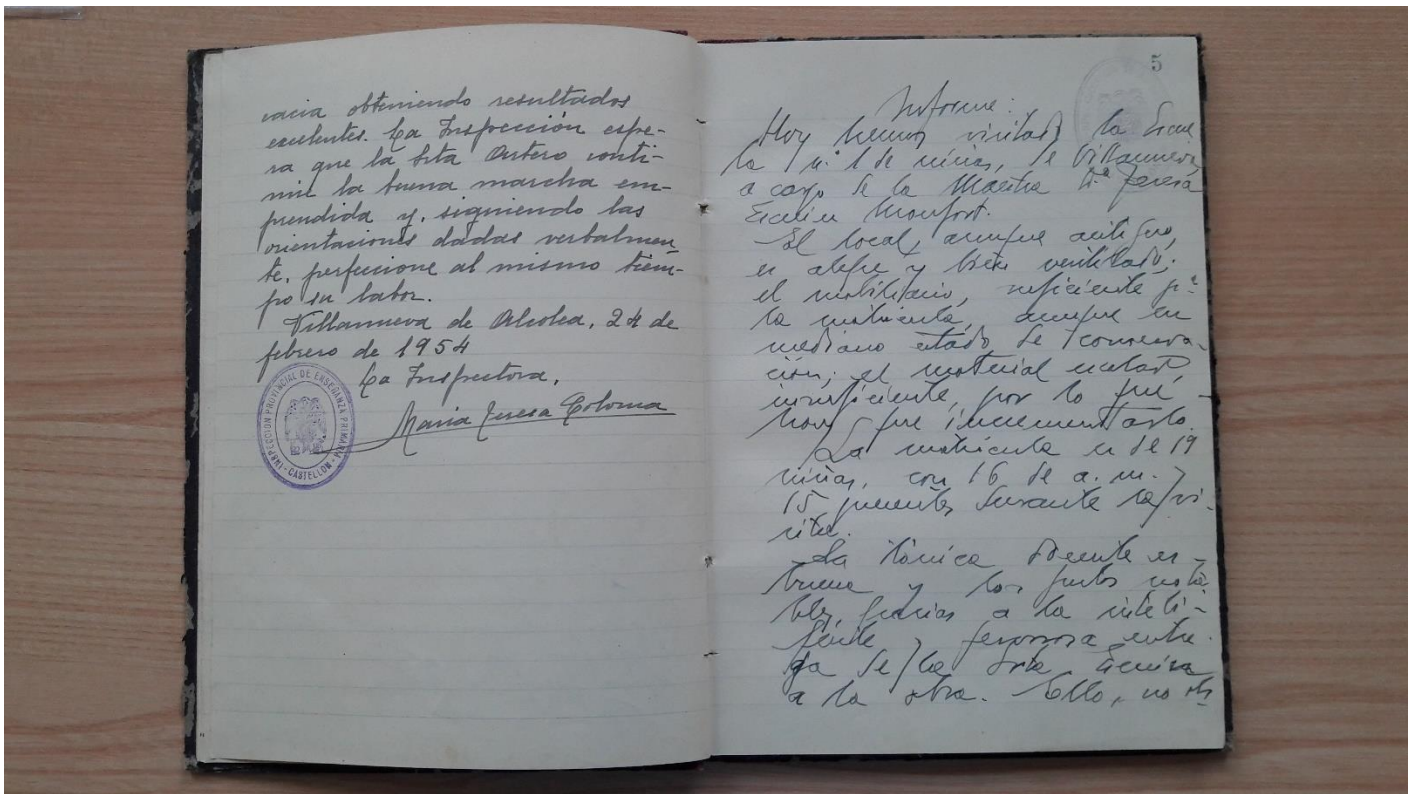 vacia obteniendo resultados
excelentes. La Inspección espe-
ra que la Srta Antero conti-
núe la buena marcha em-
prendida y, siguiendo las
orientaciones dadas verbalmen-
te, perfeccione al mismo tiem-
po su labor.
Villanueva de Alcolea, 24 de
febrero de 1954
La Inspectora,
María Teresa Coloma
INSPECCION PROVINCIAL DE ENSEÑANZA PRIMARIA - CASTELLON -
5
Informe:
Hoy hemos visitado la Escue
la nº 1 de niñas, de Villanueva,
a cargo de la Maestra Dª Teresa
Monfort.
El local, aunque antiguo,
es alegre y bien ventilado;
el mobiliario, suficiente pª
la matrícula, aunque en
mediano estado de conserva-
ción; el material escolar,
insuficiente, por lo que
hay que incrementarlo.
La matrícula es de 19
niñas, con 16 de a. m. y
15 presentes durante la vi-
sita.
La técnica docente es
buena y los frutos nota
bles, gracias a la inteli-
gente y fervorosa entre-
ga de la Srta
a la obra. Ello, no ob-